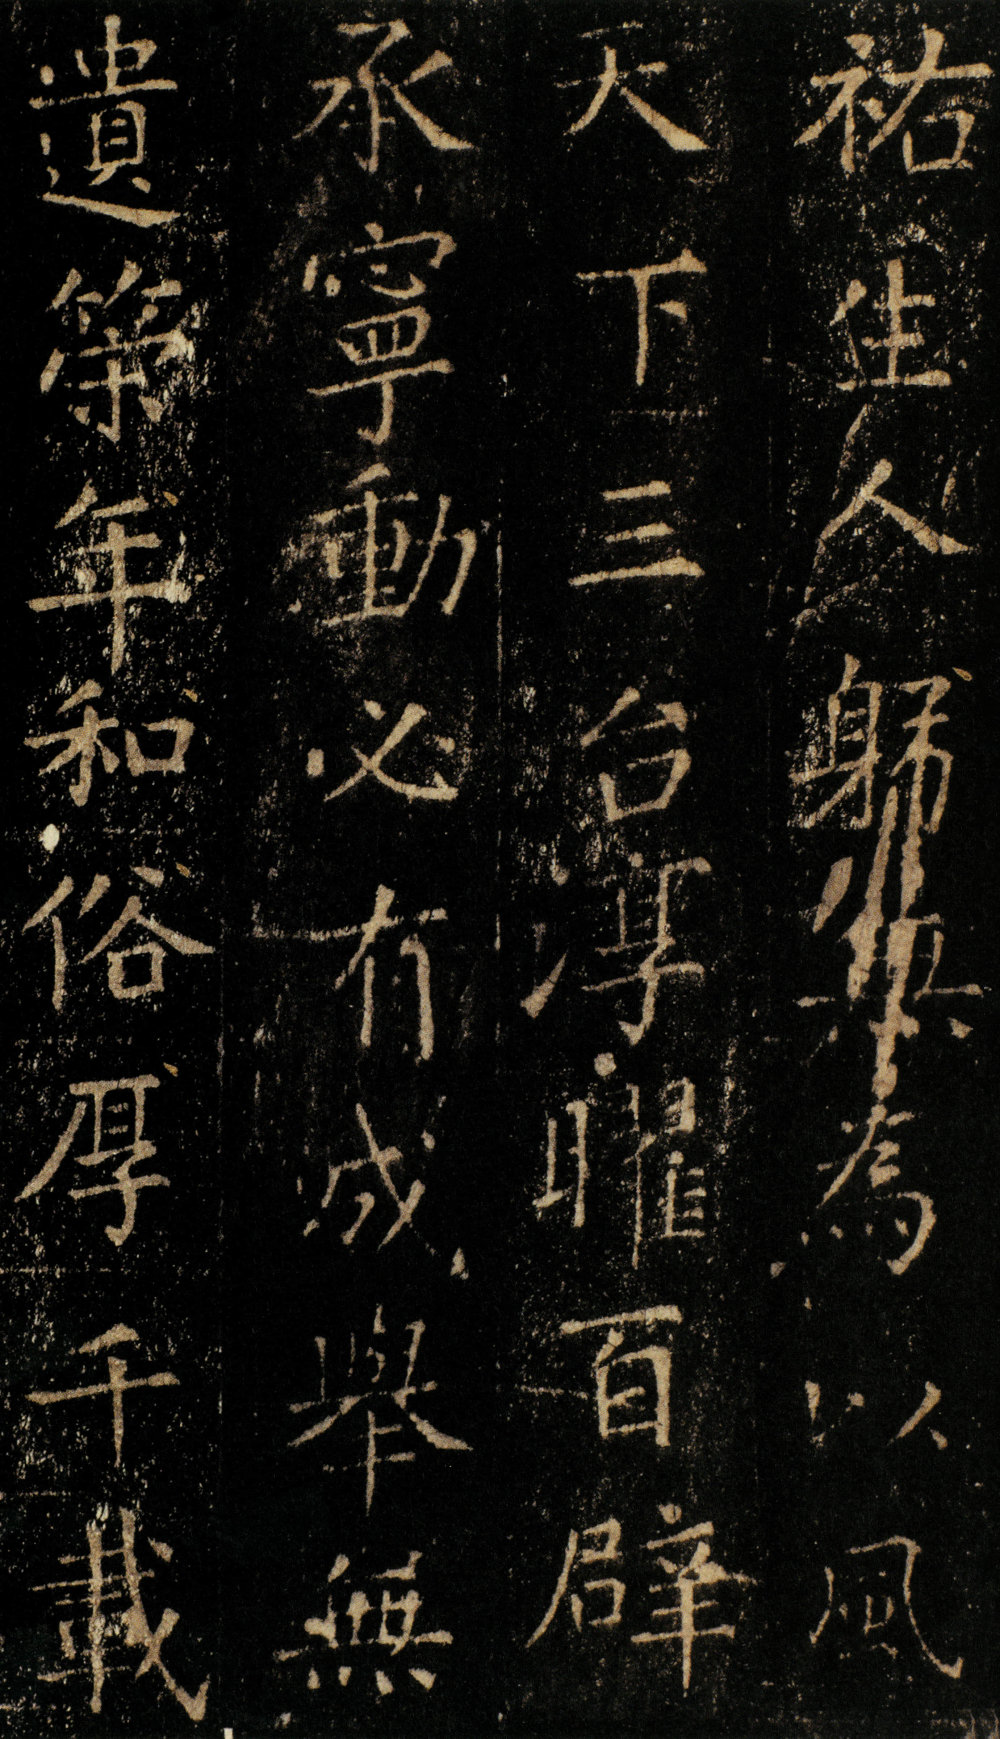 祐生人與為以風
天下三台淳曜百辟
承寧動必有成舉無
遺策年和俗厚千載